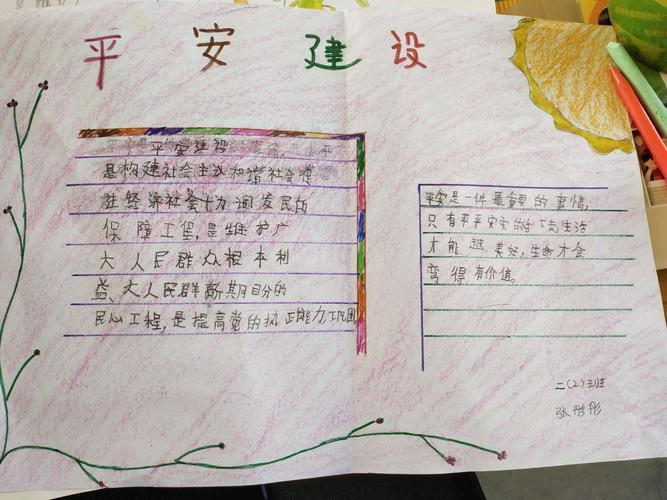 平安建设
平安建设
是构建社会主义和谐社会
经济社会十为调发民的
保障工程,是维护广
大人民群众根本利
益、大人民群期目分的
民心工程,是提高党的执正能力工
平安是一件最重要的事情,
只有平平安安的下去,生活
才能越美好,生命才会
变得有价值。
二(2)班
张彤彤